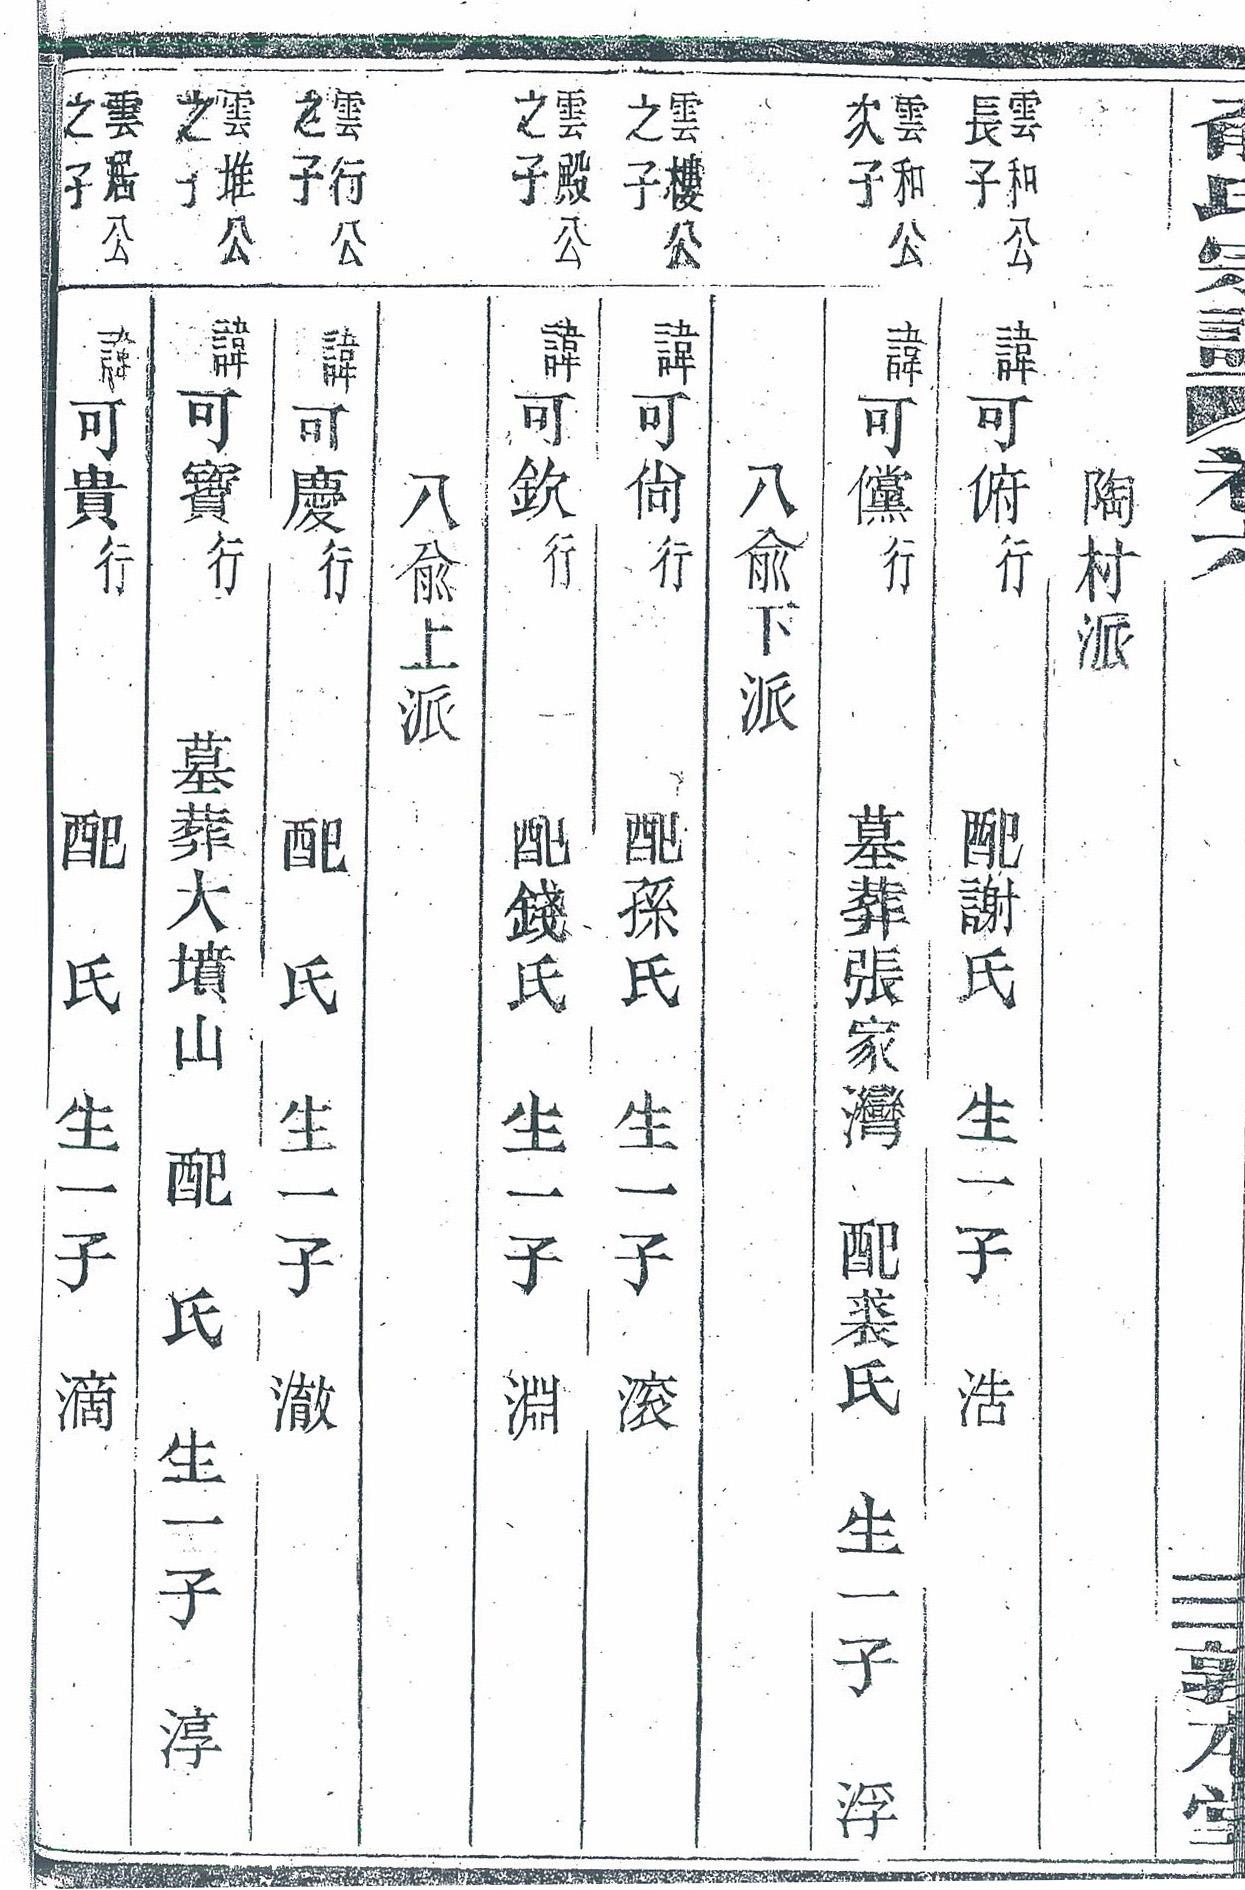 氏宗譜 卷六 三 敦本堂
陶村派
雲和公長子 諱可俯行 配謝氏 生一子 浩
雲和公次子 諱可儻行 墓葬張家灣 配裘氏 生一子 浮
八俞下派
雲樓公之子 諱可尙行 配孫氏 生一子 滚
雲殿公之子 諱可欽行 配錢氏 生一子 淵
八俞上派
雲行公之子 諱可慶行 配 氏 生一子 澈
雲堆公之子 諱可寶行 墓葬大墳山 配 氏 生一子 淳
雲居公之子 諱可貴行 配 氏 生一子 滴